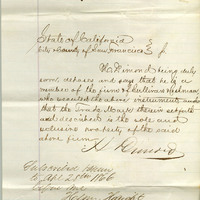 State of California
City & County of San Francisco } ss
H. Dimond being duly
sworn, deposes and says that he is a
member of the firm of
who executed the above instrument and
that the Trade Mark therein
and described is the sole and
exclusive property of the said
above firm
H Dimond
Subscribed & sworn
to Apl 28th 1866
before me